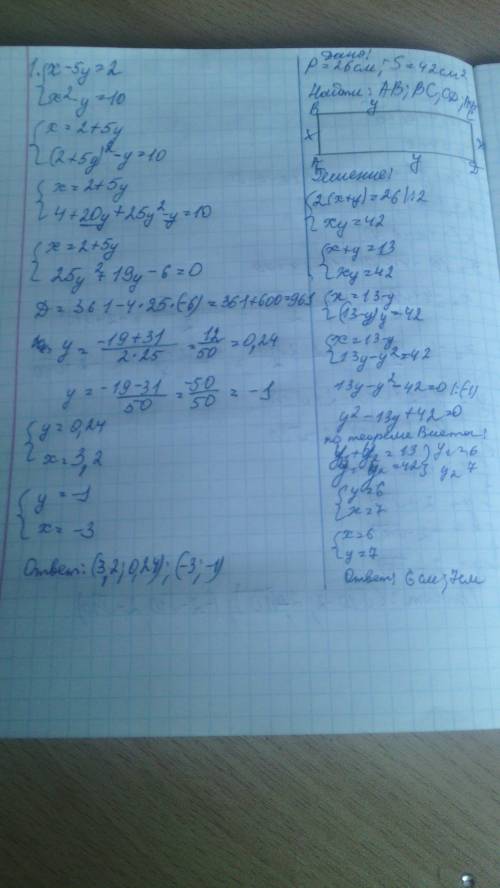 1. {x-5y=2
{x²-y=10
{x=2+5y
{(2+5y)²-y=10
{x=2+5y
{4+20y+25y²-y=10
{x=2+5y
25y²+19y-6=0
D=361-4·25·(-6)=361+600=961
y= -19+31/2·25 = 12/50 = 0,24
y= -19-31/50 = -50/50 = -1
{y=0,24
{x=3,2
{y=-1
{x=-3
Ответ: (3,2; 0,24); (-3; -1)
Дано:
P=26см; S=42см²
Найти: AB; BC; CD;
B y
x x
A y D
Решение:
{2(x+y)=26 |:2
{xy=42
{x+y=13
{xy=42
{x=13-y
{(13-y)y=42
{x=13-y
{13y-y²=42
13y-y²-42=0 |:(-1)
y²-13y+42=0
по теореме Виета:
y₁+y₂=13; y₁=6
y₁ y₂=42; y₂ 7
{y=6
{x=7
{x=6
{y=7
Ответ: 6см; 7см